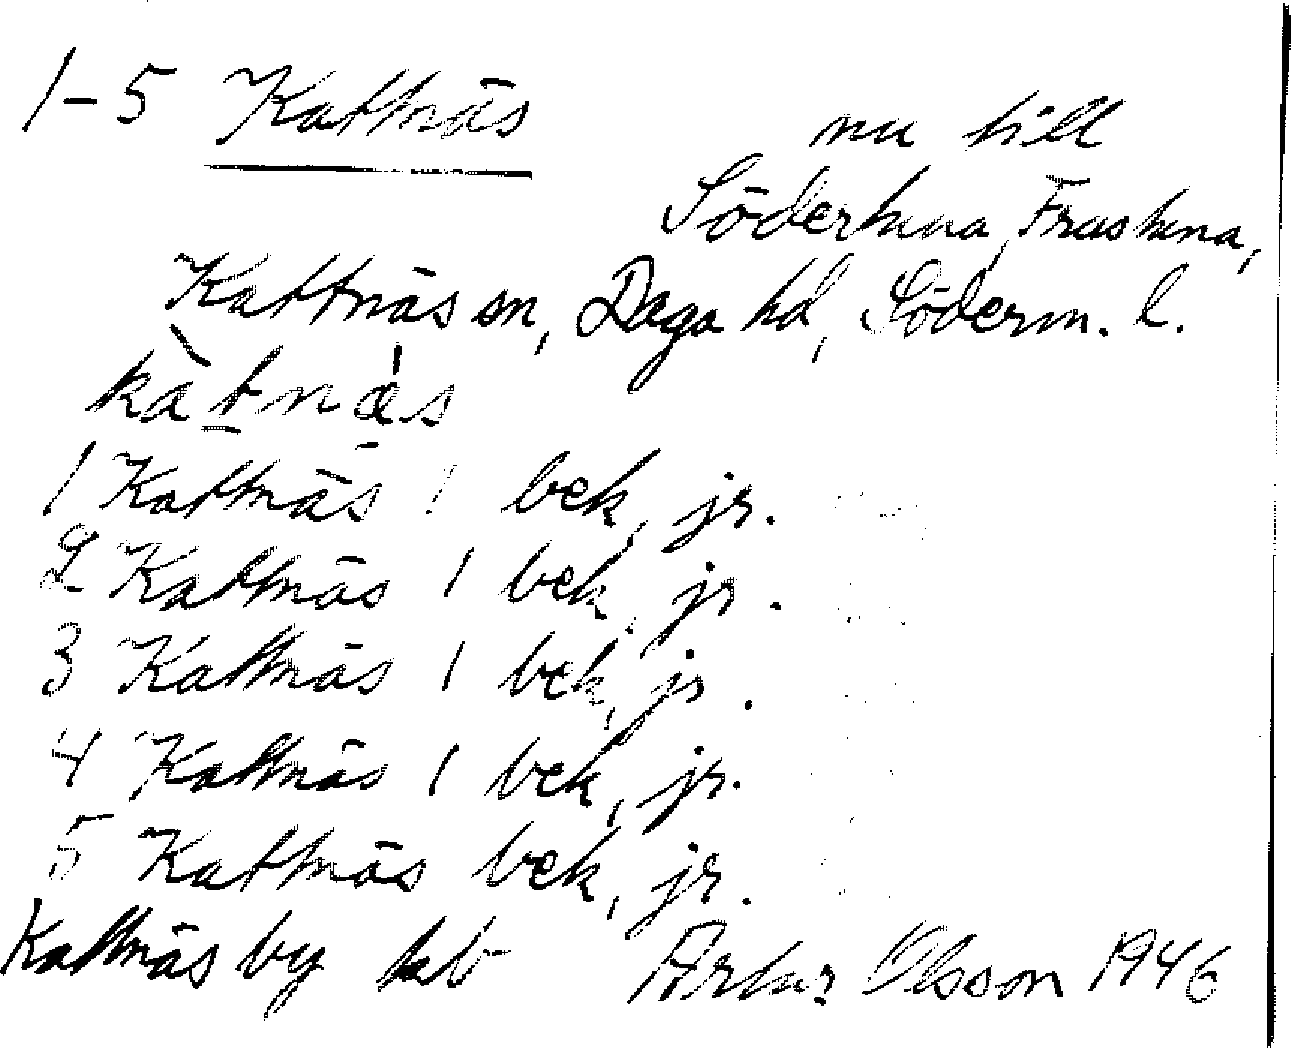 1-5 Kattnäs
nu till
Södertuna, Frustuna,
Kattnäs sn, Daga hd, Söderm. l.
kàtnäs
1 Kattnäs 1 bek, jr.
2 Kattnäs 1 bek, jr.
3 Kattnäs 1 bek, jr.
4 Kattnäs 1 bek, jr.
5 Kattnäs bek, jr.
Kattnäs by kb Artur Olsson 1946